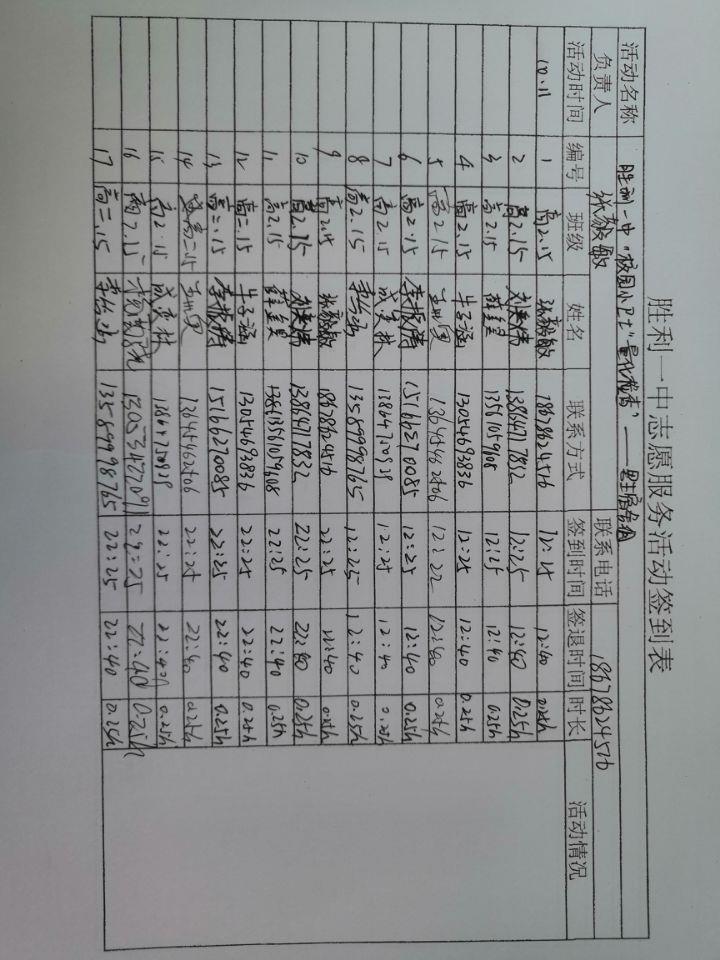 胜利一中志愿服务活动签到表
活动名称 胜利一中"校园小卫士"量化检查"——男生宿舍组
负责人 张毅敏 联系电话 18678624516
活动时间 编号 班级 姓名 联系方式 签到时间 签退时间 时长 活动情况
10.11 1 高2.15 张毅敏 18678624516 12:25 12:40 0.25h
2 高2.15 13864717832 12:25 12:40 0.25h
3 高2.15 薛皇 13561059608 12:25 12:40 0.25h
4 高2.15 牛子涵 13054693836 12:25 12:40 0.25h
5 高2.15 13645462606 12:22 12:40 0.25h
6 高2.15 李振涛 15166270085 12:25 12:40 0.25h
7 高2.15 12:25 12:40 0.25h
8 高2.15 13589998765 12:25 12:40 0.25h
9 高2.15 张毅敏 18678624516 22:25 22:40 0.25h
10 高2.15 13864717832 22:25 22:40 0.25h
11 高2.15 薛皇 13561059608 22:25 22:40 0.25h
12 高二.15 牛子涵 13054693836 22:25 22:40 0.25h
13 高二.15 李振涛 15166270085 22:25 22:40 0.25h
14 高二.15 13645462606 22:25 22:40 0.25h
15 高2.15 22:25 22:40 0.25h
16 高2.15 13053477091 22:25 22:40 0.25h
17 高二.15 13589998765 22:25 22:40 0.25h